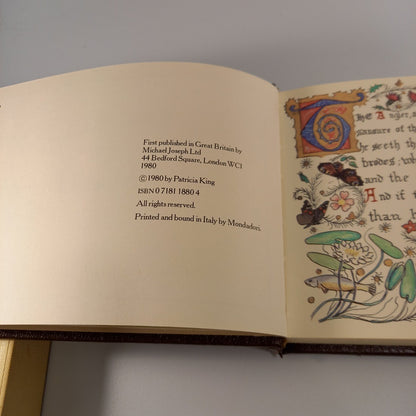 First published in Great Britain by
Michael Joseph Ltd
44 Bedford Square, London WC1
1980
© 1980 by Patricia King
ISBN 0 7181 1880 4
All rights reserved.
Printed and bound in Italy by Mondadori.
The Anger, a
seasure of th
he seeth th
brodes; w
and the
And if
than